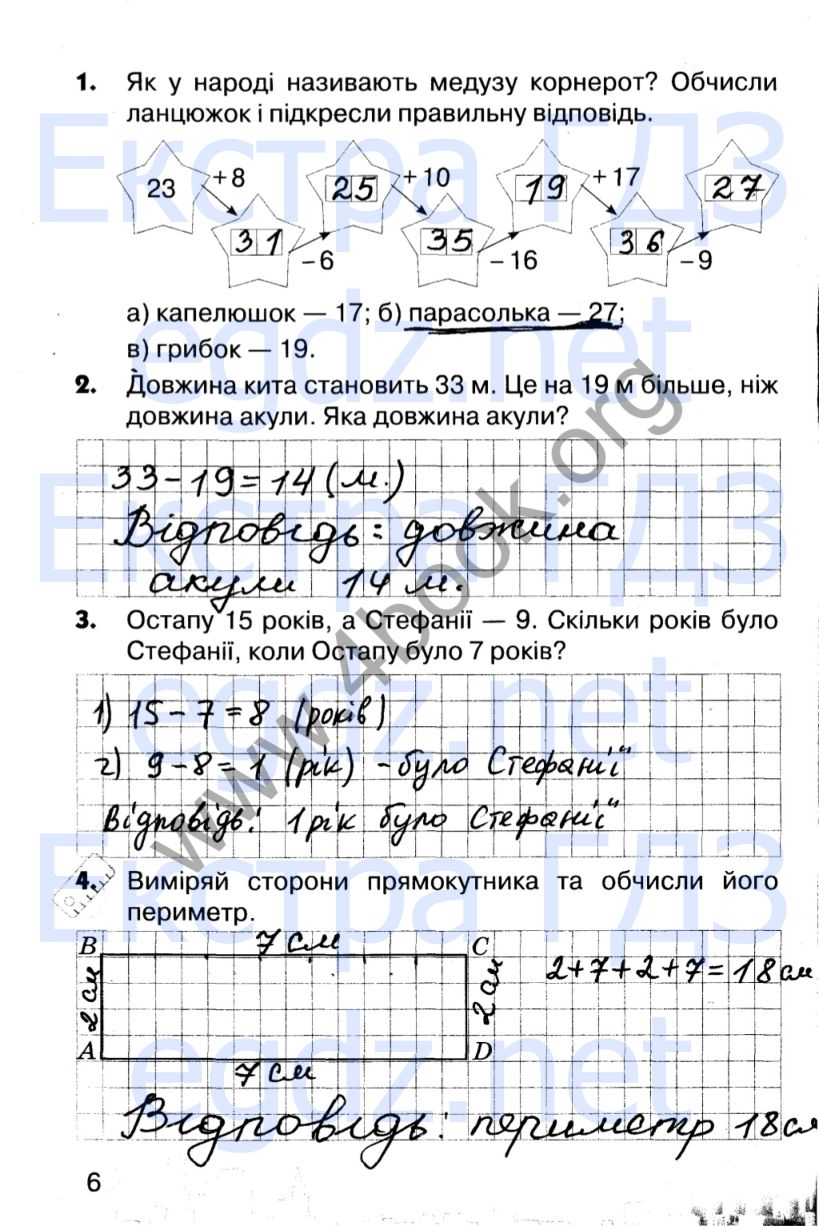 1. Як у народі називають медузу корнерот? Обчисли
ланцюжок і підкресли правильну відповідь.
23 +8 25 +10 19 +17 27
31 –6 35 –16 36 –9
а) капелюшок — 17; б) парасолька — 27;
в) грибок — 19.
2. Довжина кита становить 33 м. Це на 19 м більше, ніж
довжина акули. Яка довжина акули?
33-19=14 (м.)
Відповідь: довжина
акули 14 м.
3. Остапу 15 років, а Стефанії — 9. Скільки років було
Стефанії, коли Остапу було 7 років?
1) 15-7=8 (років)
2) 9-8=1 (рік) -було Стефанії
Відповідь: 1 рік було Стефанії
4. Виміряй сторони прямокутника та обчисли його
периметр.
B 7 см C
2 см 2 см 2+7+2+7=18 см
A D
7 см
Відповідь: периметр 18 см
6
Екстра ГДЗ
egdz.net
Екстра ГДЗ
egdz.net
Екстра ГДЗ
egdz.net
www.4book.org